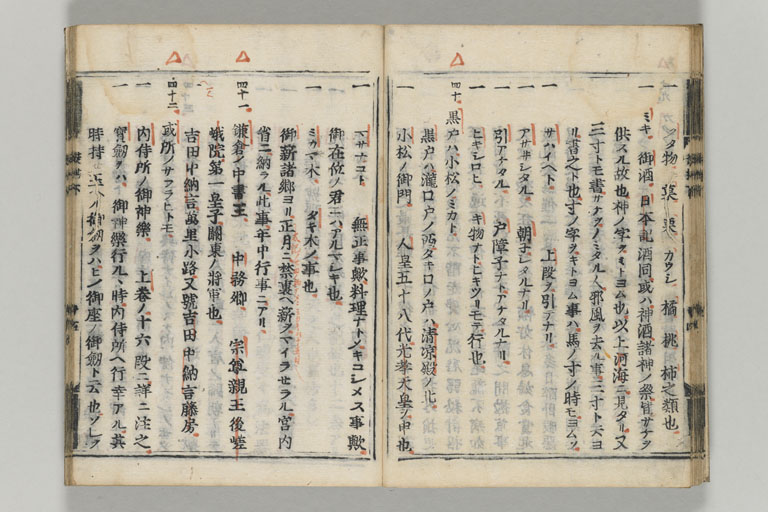 一 クタ物 菓 菓 カウシ 橘 桃 柿之類也
一 ミキ 御酒 日本記酒同或ハ神酒諸神ノ祭皆サナヲ
供スル故也神ノ字ヲミトヨム也以上河海ニ見タリ又
三寸トモ書サナヲノミタル人邪風ヲ去ル事三寸ト云ヨ
リ書之ト也寸ノ字ヲキトヨム事ハ馬ノ寸ノ時モヨムソ
一 サハイヘト 上段ヲ引テナリ
一 アサヰシタル 朝 シタルナリ
一 引アナタル 戸障子ナトアナタルナリ
一 ヒキシロヒ キ物ナトヒキツリモテ行也
四十 黒戸ハ小松ノミカト
黒戸ハ瀧口ノ戸ノ西タキロノ戸ハ清凉殿ノ北
小松ノ御門 人皇五十八代光孝天皇ノ申也
一 マサナコト 無正事歟料理ナトノキコシメス事歟
御在位ノ君ニハアルマシキ也
一 ミカマ木 タキ木ノ事也
御薪諸郷ヨリ正月ニ禁裏ヘ薪ヲマイラセラル宮内
省ニ納ラル此事年中行事ニアリ
四十一 鎌倉ノ中書王 中務卿 宗尊親王後嵯
峨院第一皇子關東ノ將軍也
一 吉田中納言萬里小路又號吉田中納言藤房
四十二 或所ノサフラヒトモ
一 内侍所ノ御神樂 上卷ノ十六段ニ詳ニ注之
一 寶劔ヲハ 御神樂行ルヽ時内侍所ヘ行幸アル其
時持 ル 御劔ヲハヒノ御座ノ御劔ト云也ソレヲ